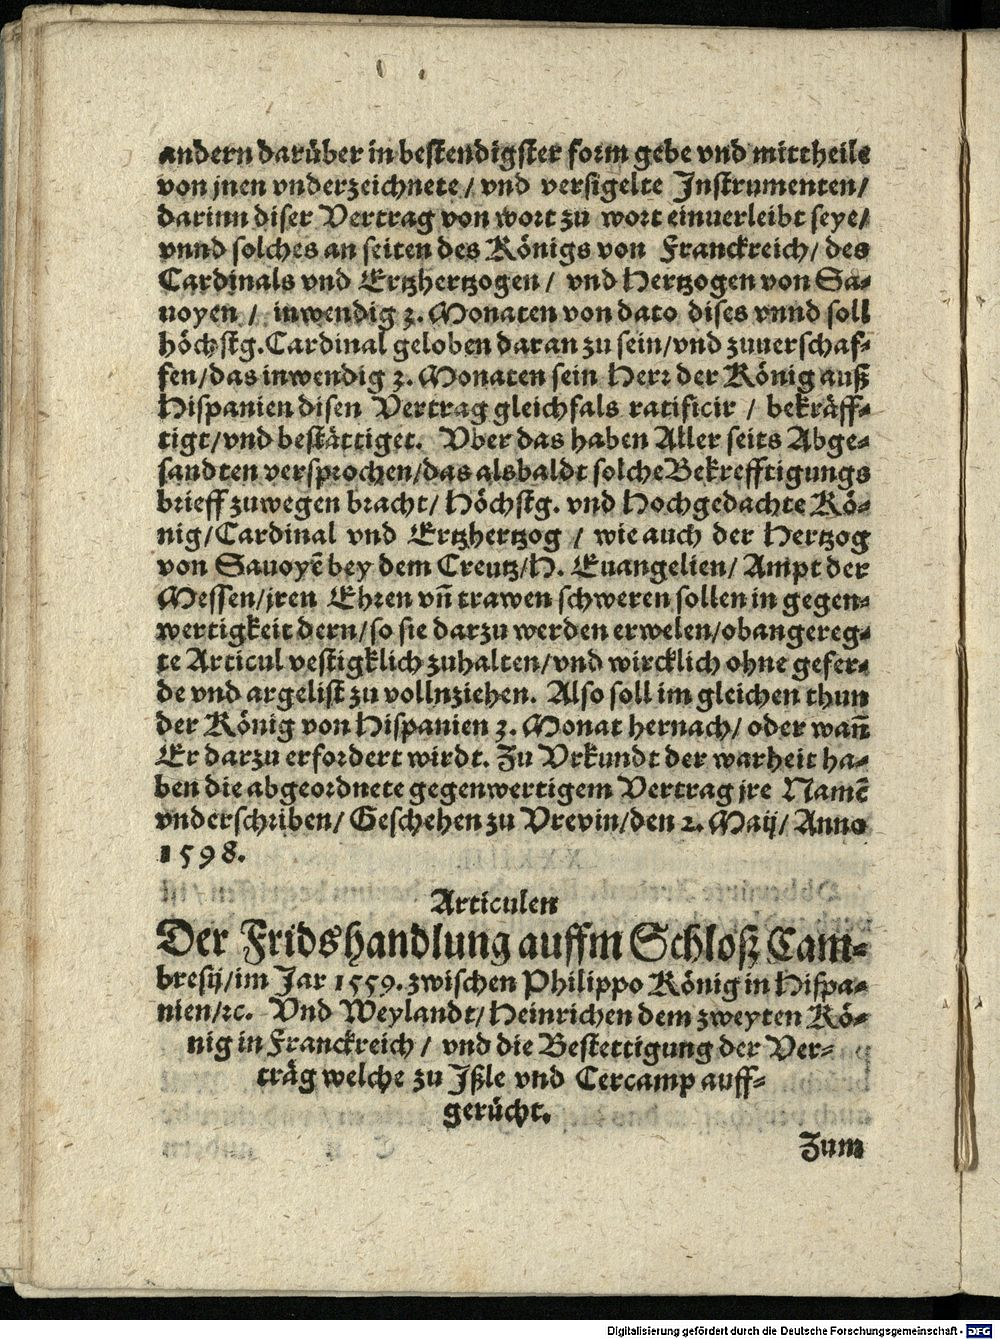 andern darüber in bestendigster form gebe vnd mittheile
von jnen vnderzeichnete / vnd versigelte Instrumenten /
darinn diser Vertrag von wort zu wort einuerleibt seye /
vnnd solches an seiten des Königs von Franckreich / des
Cardinals vnd Ertzhertzogen / vnd Hertzogen von Sa-
uoyen / inwendig 3. Monaten von dato dises vnnd soll
höchstg. Cardinal geloben daran zu sein / vnd zuuerschaf-
fen / das inwendig 3. Monaten sein Herr der König auß
Hispanien disen Vertrag gleichfals ratificir / bekräff-
tigt / vnd bestättiget. Vber das haben Aller seits Abge-
sandten versprochen / das alsbaldt solche Bekrefftigungs
brieff zuwegen bracht / Höchstg. vnd Hochgedachte Kö-
nig / Cardinal vnd Ertzhertzog / wie auch der Hertzog
von Sauoyẽ bey dem Creutz / H. Euangelien / Ampt der
Messen / jren Ehren vñ trawen schweren sollen in gegen-
wertigkeit dern / so sie darzu werden erwelen / obangereg-
te Articul vestigklich zuhalten / vnd wircklich ohne gefer-
de vnd argelist zu vollnziehen. Also soll im gleichen thun
der König von Hispanien 3. Monat hernach / oder wañ
Er darzu erfordert wirdt. Zu Vrkundt der warheit ha-
ben die abgeordnete gegenwertigem Vertrag jre Namẽ
vnderschriben / Geschehen zu Vrevin / den 2. Maij / Anno
1598.
Articulen
Der Fridshandlung auffm Schloß Cam-
bresij / im Jar 1559. zwischen Philippo König in Hispa-
nien / ꝛc. Vnd Weylandt / Heinrichen dem zweyten Kö-
nig in Franckreich / vnd die Bestettigung der Ver-
träg welche zu Ißle vnd Cercamp auff-
gerücht.
Zum
Digitalisierung gefördert durch die Deutsche Forschungsgemeinschaft - DFG